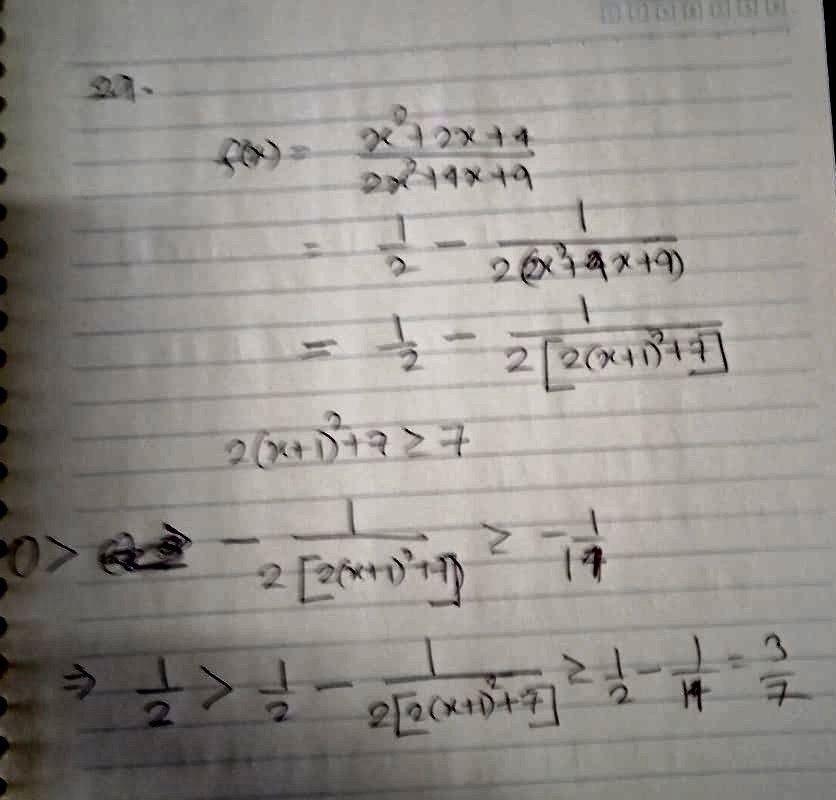 27.
f(x) = \frac{x^2+2x+4}{2x^2+4x+9}
= \frac{1}{2} - \frac{1}{2(2x^2+4x+9)}
= \frac{1}{2} - \frac{1}{2[2(x+1)^2+7]}
2(x+1)^2+7 ≥ 7
0 > - \frac{1}{2[2(x+1)^2+7]} ≥ -\frac{1}{14}
⇒ \frac{1}{2} > \frac{1}{2} - \frac{1}{2[2(x+1)^2+7]} ≥ \frac{1}{2} - \frac{1}{14} = \frac{3}{7}